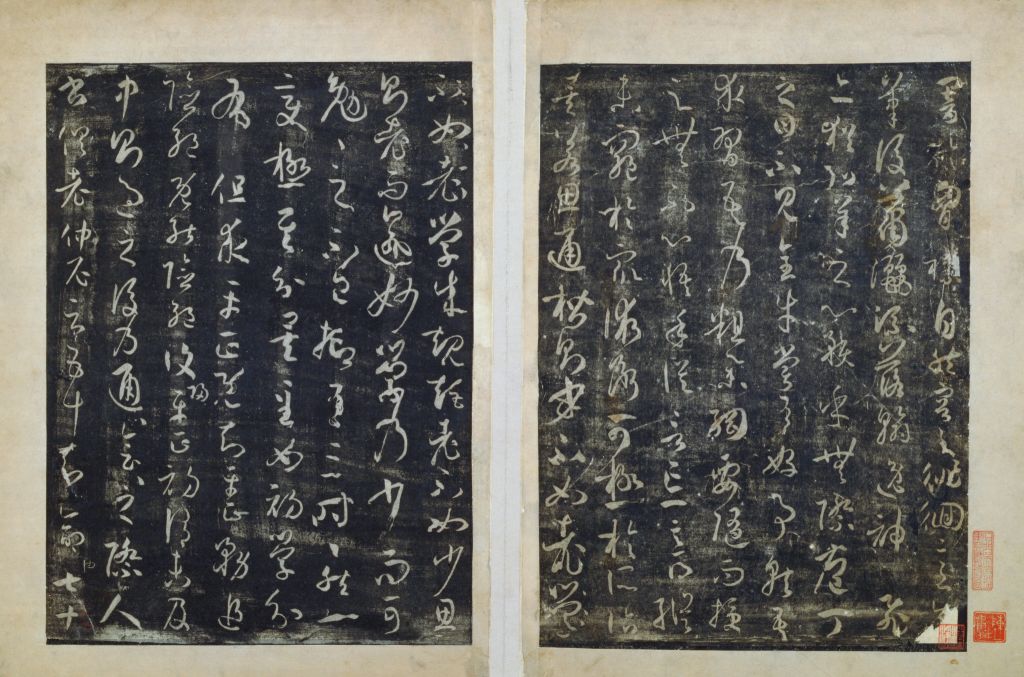 闇於胸襟自然容與徘徊意先
筆後瀟灑流落翰逸神飛
亦猶弘羊之心預乎無際庖丁
之目不見全牛嘗有好事就吾
求習吾乃粗舉綱要隨而授
之無不心悟手從言忘意得縱
未窮於眾術斷可極於所詣
矣若思通楷則少不如老學
不如老學成規矩老不如少思
則老而逾妙學乃少而可
勉勉之不已抑有三時時然一
變極其分矣至如初學分
布但求平正既知平正務追
險絕既能險絕復歸平正初謂未及
中則過之後乃通會通會之際人
書俱老仲尼云五十知命七十